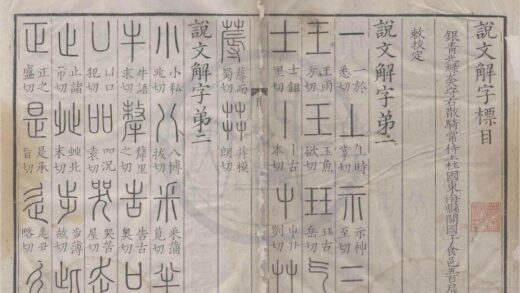 說文解字標目
銀青光祿大夫守右散騎常侍上柱國東海縣開國子食邑五百戶
敕校定
說文解字弟一
一於悉切丄時掌切示神至切三
王雨方切玉魚欲切玨古岳切气
士鉏里切丨古本切屮丑列切艸
蓐而蜀切茻模朗切
說文解字弟二
小私兆切八博拔切釆蒲莧切半
牛語求切犛里之切告古奧切口
凵口犯切吅況袁切哭苦屋切走
止諸市切癶北末切步薄故切此
正之盛切是承旨切辵丑略切彳